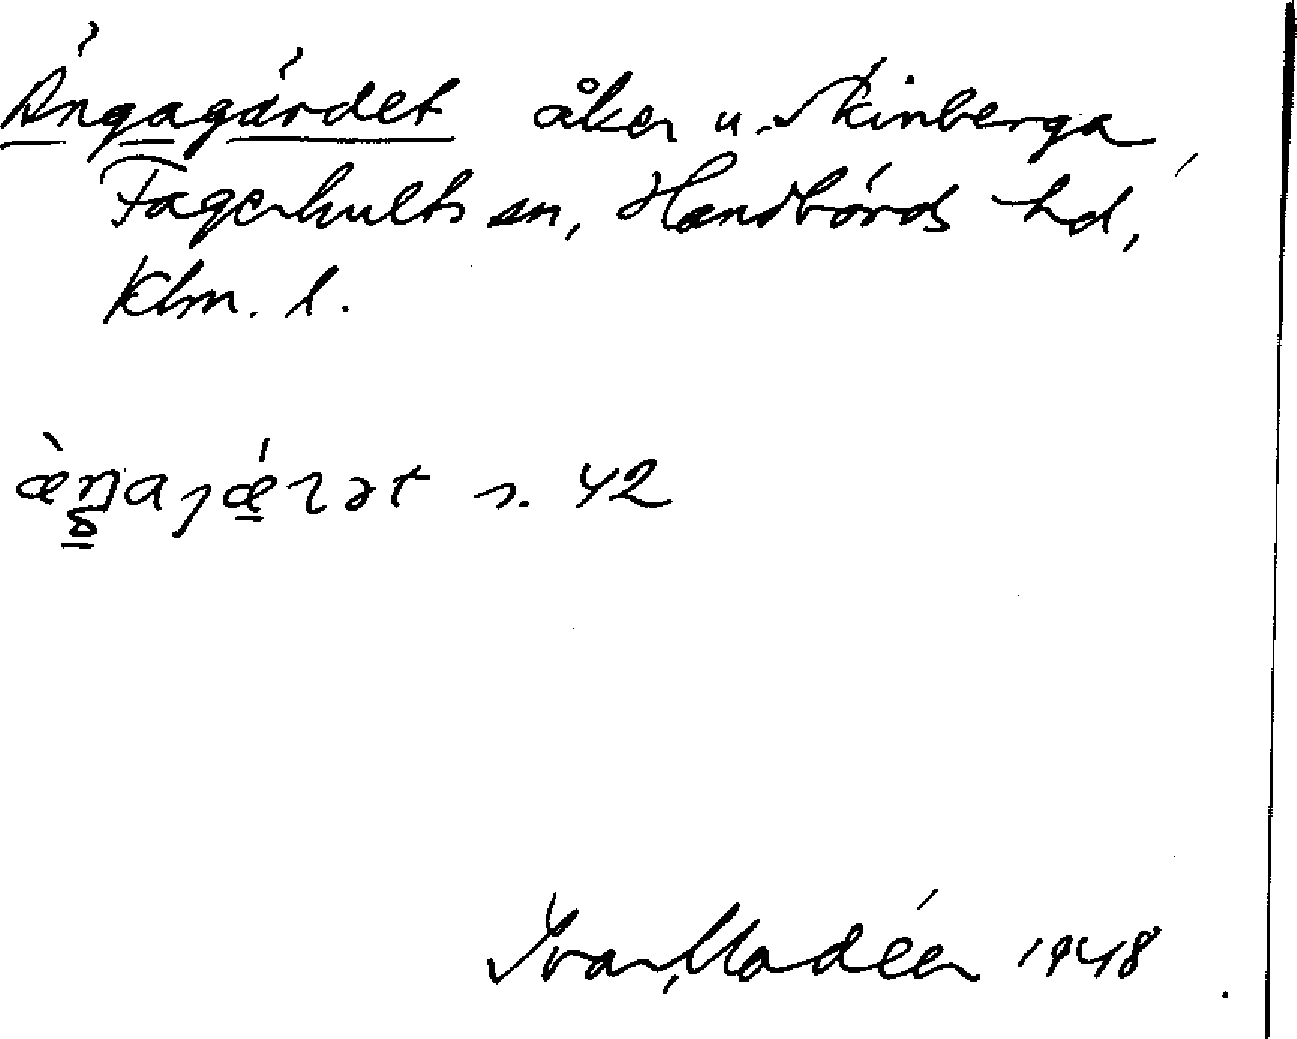 Ängagärdet åker u. Skinberga,
Fagerhults sn, Handbörds hd,
Klm. l.
æ̀ŋaȷǽɽət s. 42
Ivar Modéer 1948